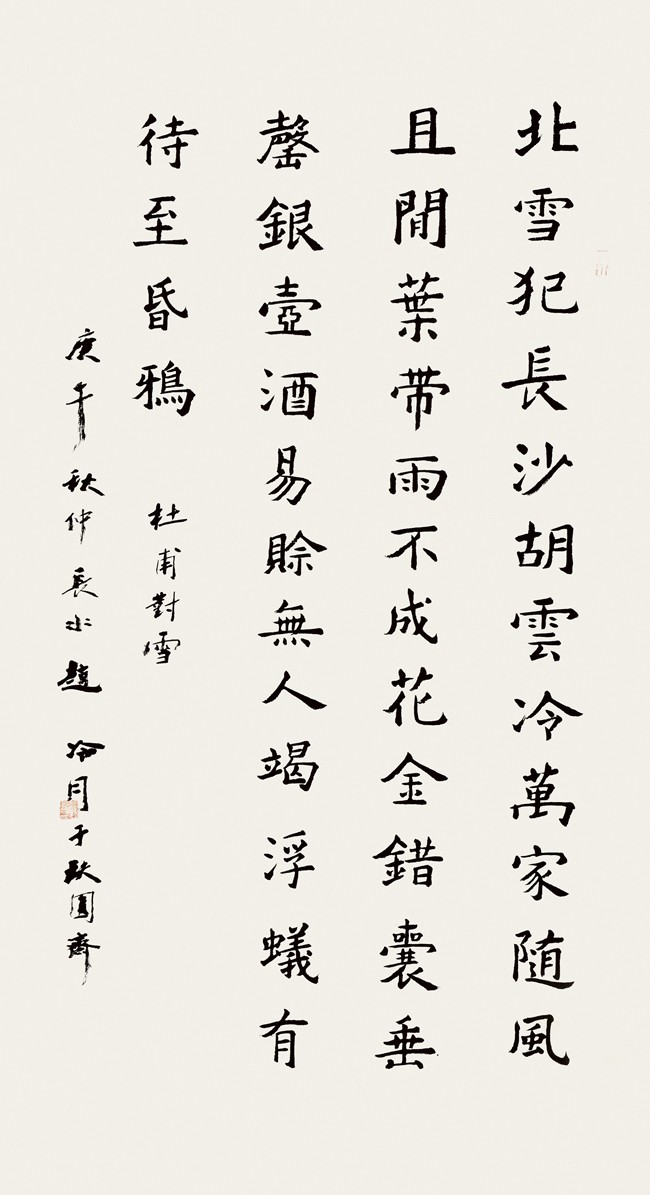 北雪犯長沙胡雲冷萬家随風
且閒葉带雨不成花金錯囊垂
罄銀壺酒易賒無人竭浮蟻有
待至昏鴉
杜甫對雪
庚午秋仲長水趙冷月于缺圓齋